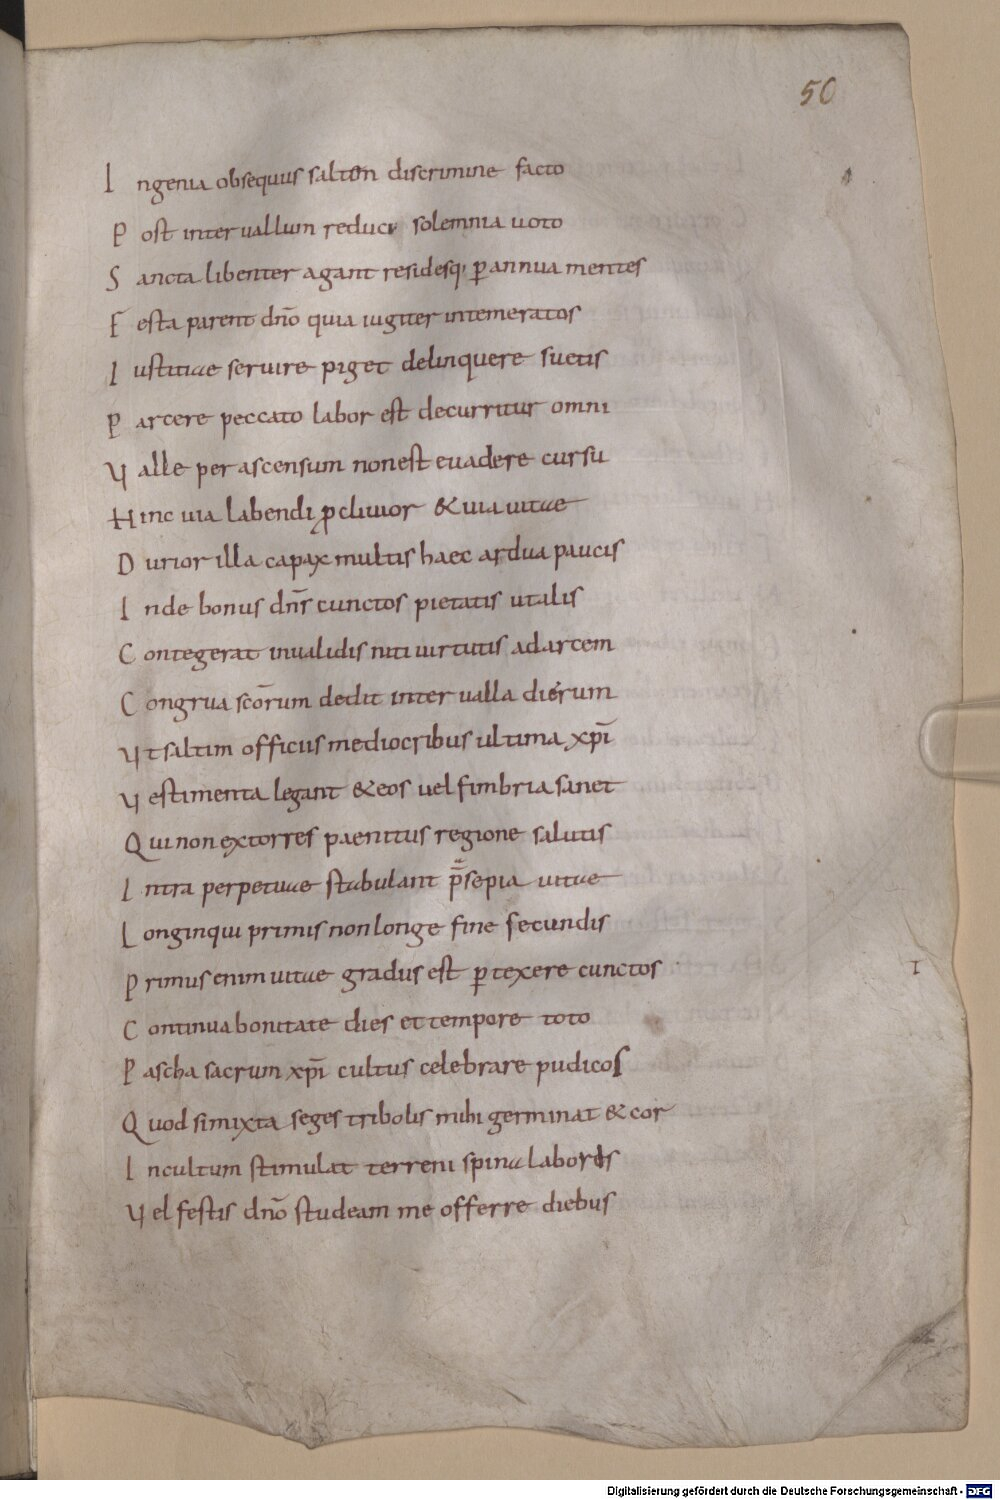 50
I ngenia obsequiis saltem discrimine facto
P ost interuallum reduci solemnia uoto
S ancta libenter agant residesq; ꝑ annua mentes
F esta parent dño quia iugiter intemeratos
I ustitiae seruire piget delinquere suetis
P arcere peccato labor est decurritur omni
V alle per ascensum non est euadere cursu
H inc uia labendi ꝓcliuior & uia uitae
D urior illa capax multis haec ardua paucis
I nde bonus dñs cunctos pietatis ut alis
C ontegerat inualidis niti uirtutis ad artem
C ongrua scōrum dedit interualla dierum
V t saltim officiis mediocribus ultima xp̄i
V estimenta legant & eos uel fimbria sanet
Q ui non extorres paenitus regione salutis
I ntra perpetuae stabulant p̄sepia uitae
L onginqui primis non longe fine secundis
P rimus enim uitae gradus est ꝑtexere cunctos
I
C ontinua bonitate dies et tempore toto
P ascha sacrum xp̄i cultus celebrare pudicos
Q uod si mixta seges tribolis mihi germinat & cor
I ncultum stimulat terreni spina laboris
V el festis dño studeam me offerre diebus
Digitalisierung gefördert durch die Deutsche Forschungsgemeinschaft - DFG